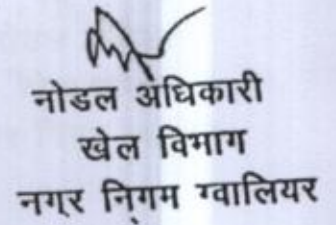 नोडल अधिकारी
खेल विभाग
नगर निगम ग्वालियर